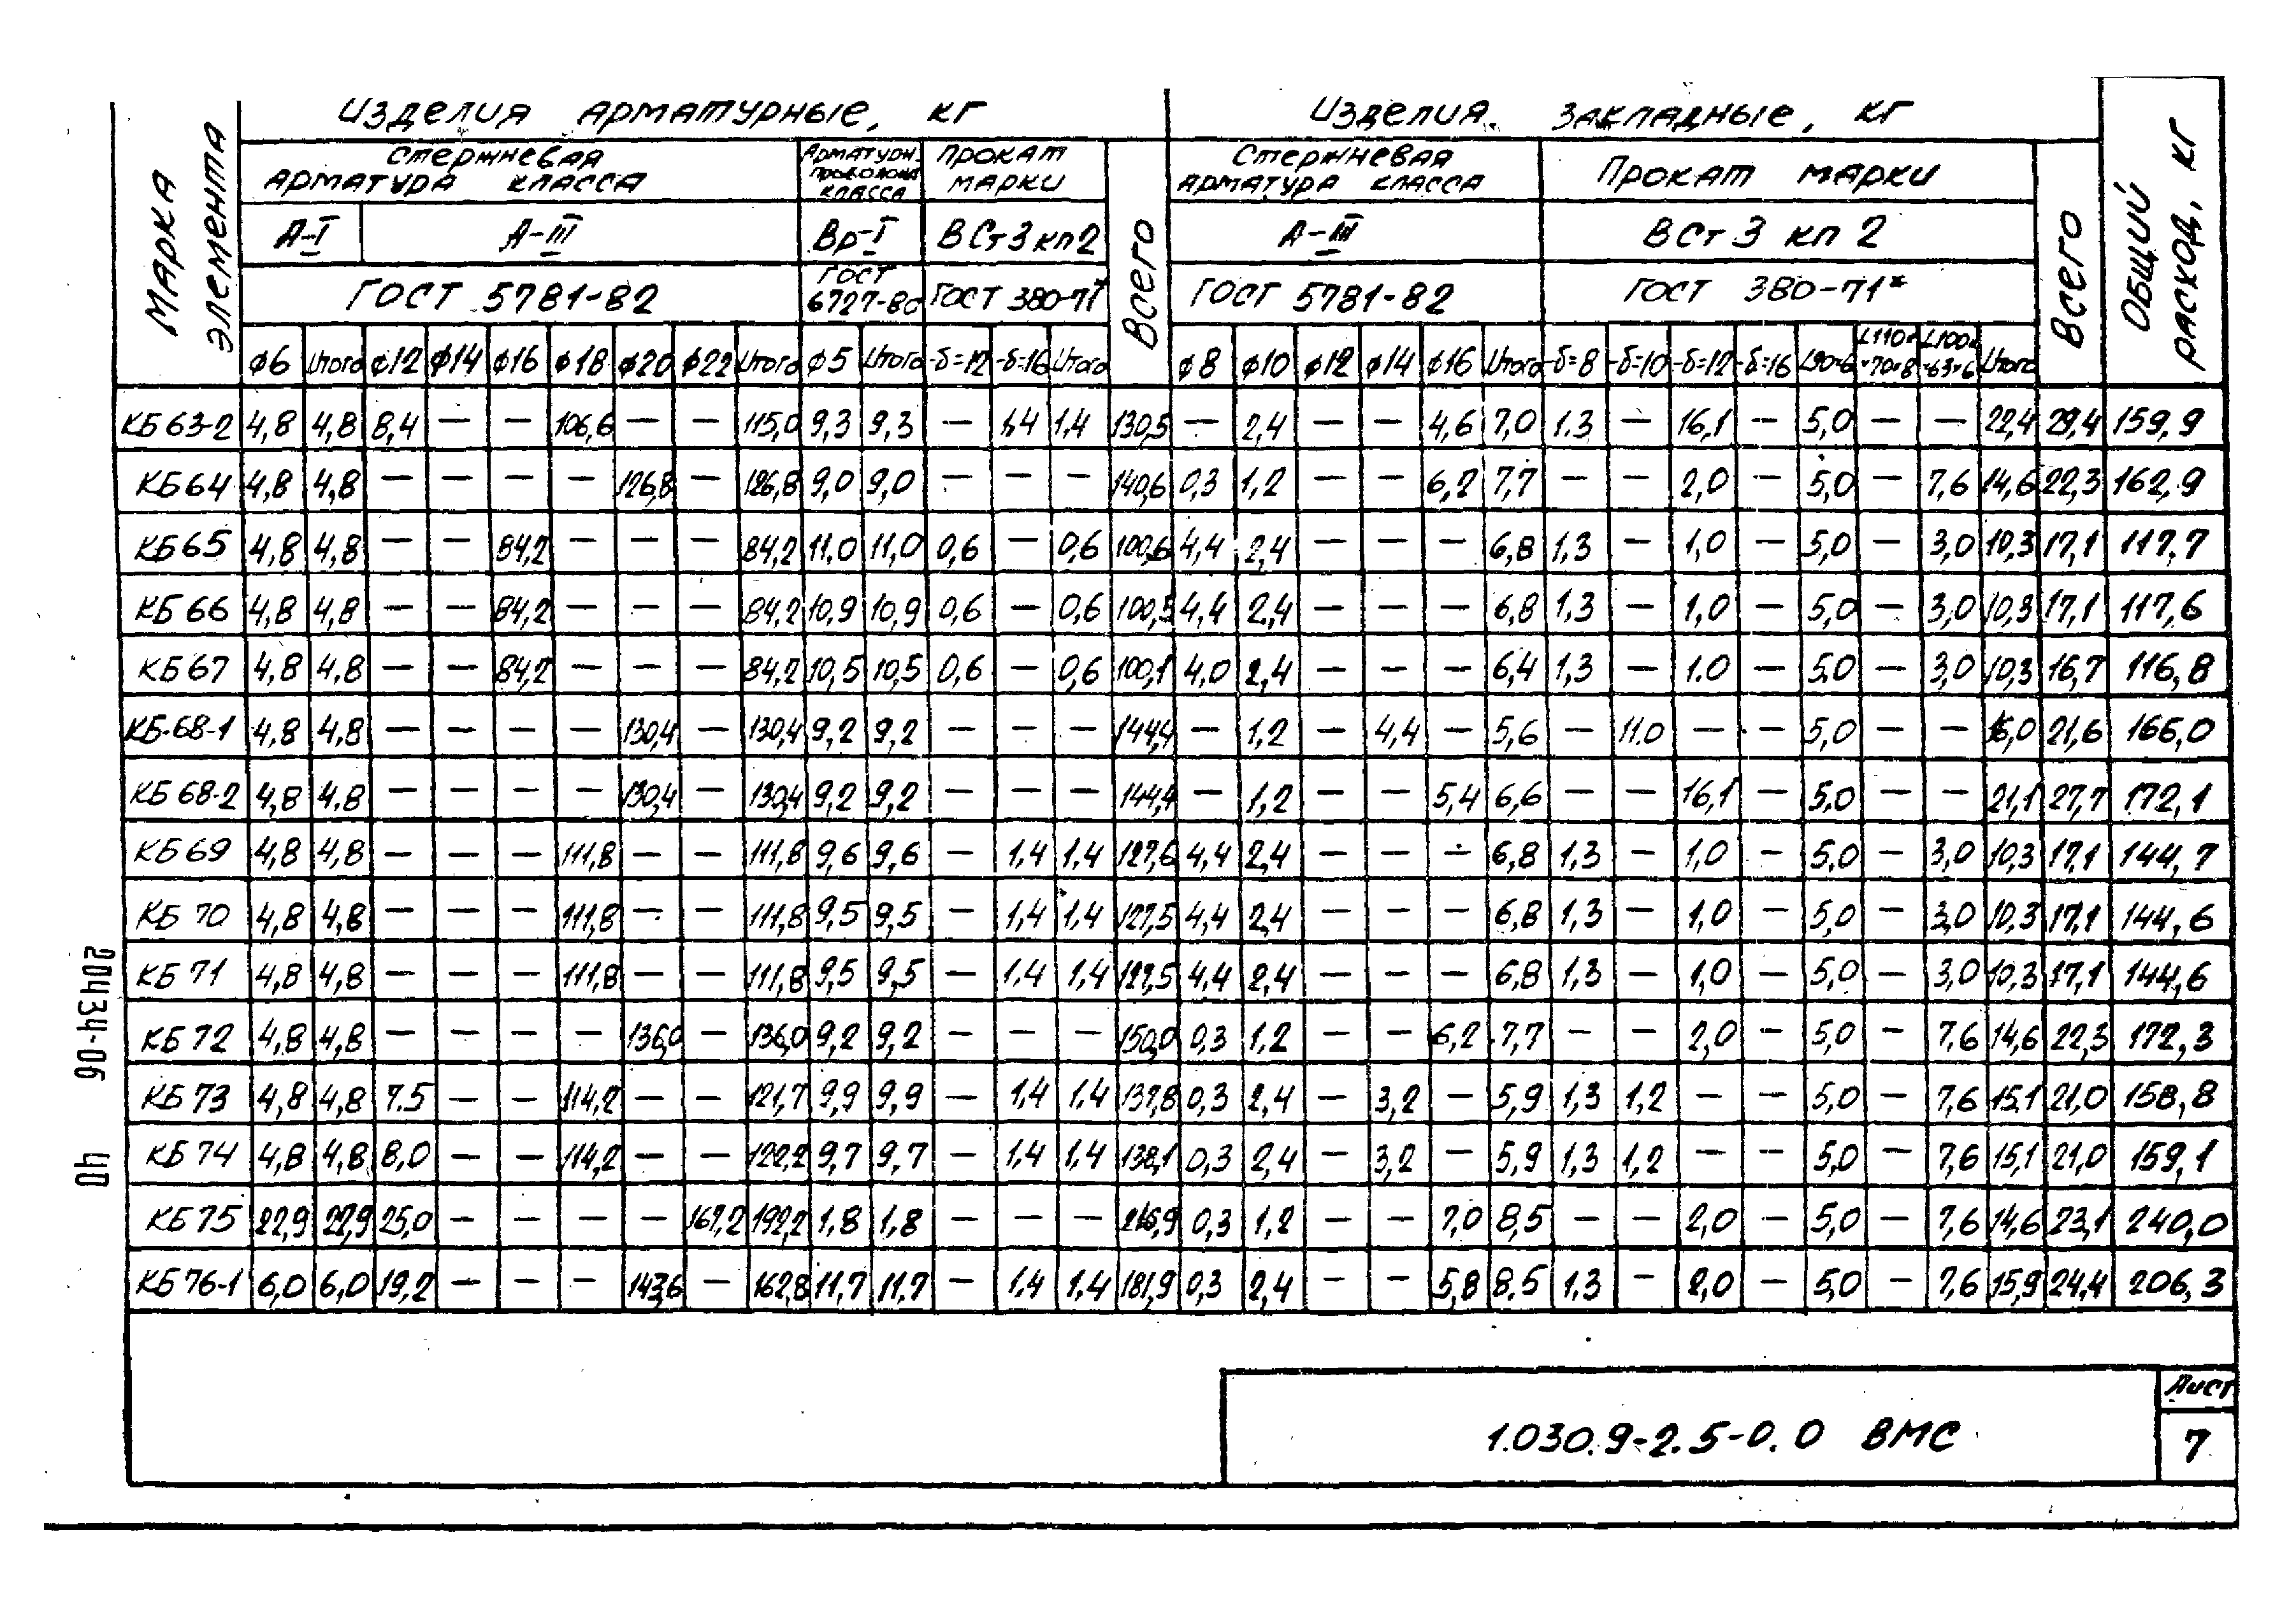 Марка элемента
Изделия арматурные, кг
Изделия закладные, кг
Общий расход, кг
Стержневая арматура класса
Прокат марки
Всего
Стержневая арматура класса
Прокат марки
Всего
А-I А-III Вр-I ВСт3кп2 А-III ВСт3 кп2
ГОСТ 5781-82 ГОСТ 6727-80 ГОСТ 380-71* ГОСТ 5781-82 ГОСТ 380-71*
φ6 Итого φ12 φ14 φ16 φ18 φ20 φ22 Итого φ5 Итого -δ=12 -δ=16 Итого φ8 φ10 φ12 φ14 φ16 Итого -δ=8 -δ=10 -δ=12 -δ=16 Итого
КБ63-2 4,8 4,8 8,4 — — 106,6 — — 115,0 9,3 9,3 — 1,4 1,4 130,5 — 2,4 — — 4,6 7,0 1.3 — 16,1 — 5,0 — — 22,4 29,4 159,9
КБ64 4,8 4,8 — — — — 126,8 — 126,8 9,0 9,0 — — — 140,6 0,3 1,2 — — 6,2 7,7 — — 2,0 — 5,0 — 7,6 14,6 22,3 162,9
КБ65 4,8 4,8 — — 84,2 — — — 84,2 11,0 11,0 0,6 — 0,6 100,6 4,4 2,4 — — — 6,8 1,3 — 1,0 — 5,0 — 3,0 10,3 17,1 117,7
КБ66 4,8 4,8 — — 84,2 — — — 84,2 10,9 10,9 0,6 — 0,6 100,5 4,4 2,4 — — — 6,8 1,3 — 1,0 — 5,0 — 3,0 10,3 17,1 117,6
КБ67 4,8 4,8 — — 84,2 — — — 84,2 10,5 10,5 0,6 — 0,6 100,1 4,0 2,4 — — — 6,4 1,3 — 1.0 — 5,0 — 3,0 10,3 16,7 116,8
КБ-68-1 4,8 4,8 — — — — 130,4 — 130,4 9,2 9,2 — — — 144,4 — 1,2 — 4,4 — 5,6 — 11.0 — — 5,0 — — 16,0 21,6 166,0
КБ68-2 4,8 4,8 — — — — 130,4 — 130,4 9,2 9,2 — — — 144,4 — 1,2 — — 5,4 6,6 — — 16,1 — 5,0 — — 21,1 27,7 172,1
КБ69 4,8 4,8 — — — 111,8 — — 111,8 9,6 9,6 — 1,4 1,4 127,6 4,4 2,4 — — — 6,8 1,3 — 1,0 — 5,0 — 3,0 10,3 17,1 144,7
КБ 70 4,8 4,8 — — — 111,8 — — 111,8 9,5 9,5 — 1,4 1,4 127,5 4,4 2,4 — — — 6,8 1,3 — 1,0 — 5,0 — 3,0 10,3 17,1 144,6
КБ 71 4,8 4,8 — — — 111,8 — — 111,8 9,5 9,5 — 1.4 1,4 127,5 4,4 2,4 — — — 6,8 1,3 — 1,0 — 5,0 — 3,0 10,3 17,1 144,6
КБ72 4,8 4,8 — — — — 136,0 — 136,0 9,2 9,2 — — — 150,0 0,3 1,2 — — 6,2 7,7 — — 2,0 — 5,0 — 7,6 14,6 22,3 172,3
КБ73 4,8 4,8 7.5 — — 114,2 — — 121,7 9,9 9,9 — 1,4 1,4 137,8 0,3 2,4 — 3,2 — 5,9 1,3 1,2 — — 5,0 — 7,6 15,1 21,0 158,8
КБ74 4,8 4,8 8,0 — — 114,2 — — 122,2 9,7 9,7 — 1,4 1,4 138,1 0,3 2,4 — 3,2 — 5,9 1,3 1,2 — — 5,0 — 7,6 15,1 21,0 159,1
КБ75 22,9 22,9 25,0 — — — — 167,2 192,2 1,8 1,8 — — — 216,9 0,3 1,2 — — 7,0 8,5 — — 2,0 — 5,0 — 7,6 14,6 23,1 240,0
КБ76-1 6,0 6,0 19,2 — — — 143,6 — 162,8 11,7 11,7 — 1,4 1,4 181,9 0,3 2,4 — — 5,8 8,5 1,3 — 2,0 — 5,0 — 7,6 15,9 24,4 206,3
20434-06 40
1.030.9-2.5-0.0 ВМС
Лист
7